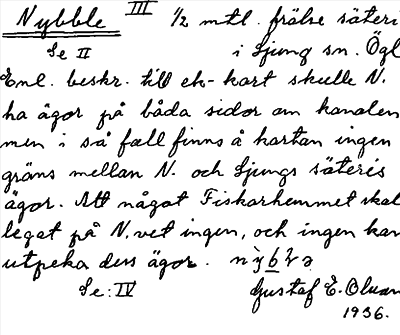 Nybble III 1/2 mtl. frälse säteri
Se II i Ljung sn. Ögl
Enl. beskr. till ek-kart skulle N.
ha ägor på båda sidor om kanalen
men i så fall finns å kartan ingen
gräns mellan N. och Ljungs säteris
ägor. Att något Fiskarhemmet skal
legat på N. vet ingen, och ingen kan
utpeka dess ägor.
Se: IV Gustaf E. Oluan
1936.